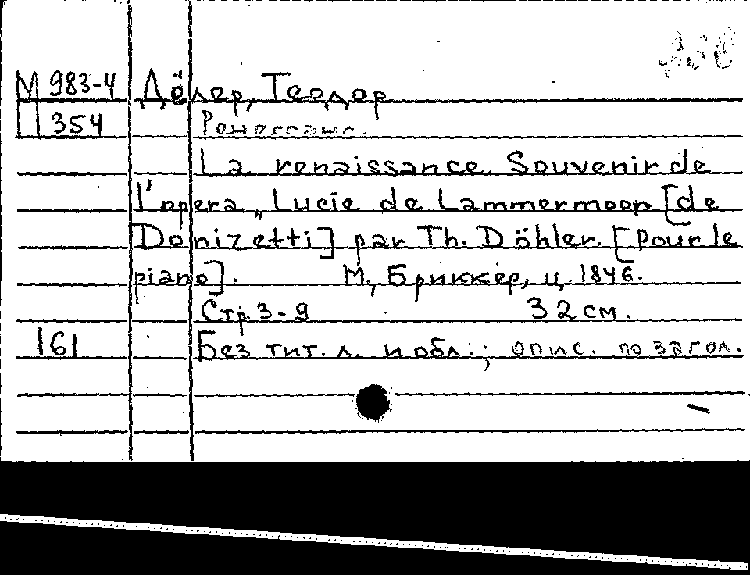 М 983-4 Дёлер, Теодор
П 354 Ренессанс.
La renaissance. Souvenir de
l'opera „Lucie de Lammermoor [de
Donizetti] par Th. Döhler. [Pour le
piano]. М., Бриккер, ц. 1846.
Стр. 3-9 32 см.
161 Без тит. л. и обл.; опис. по загол.